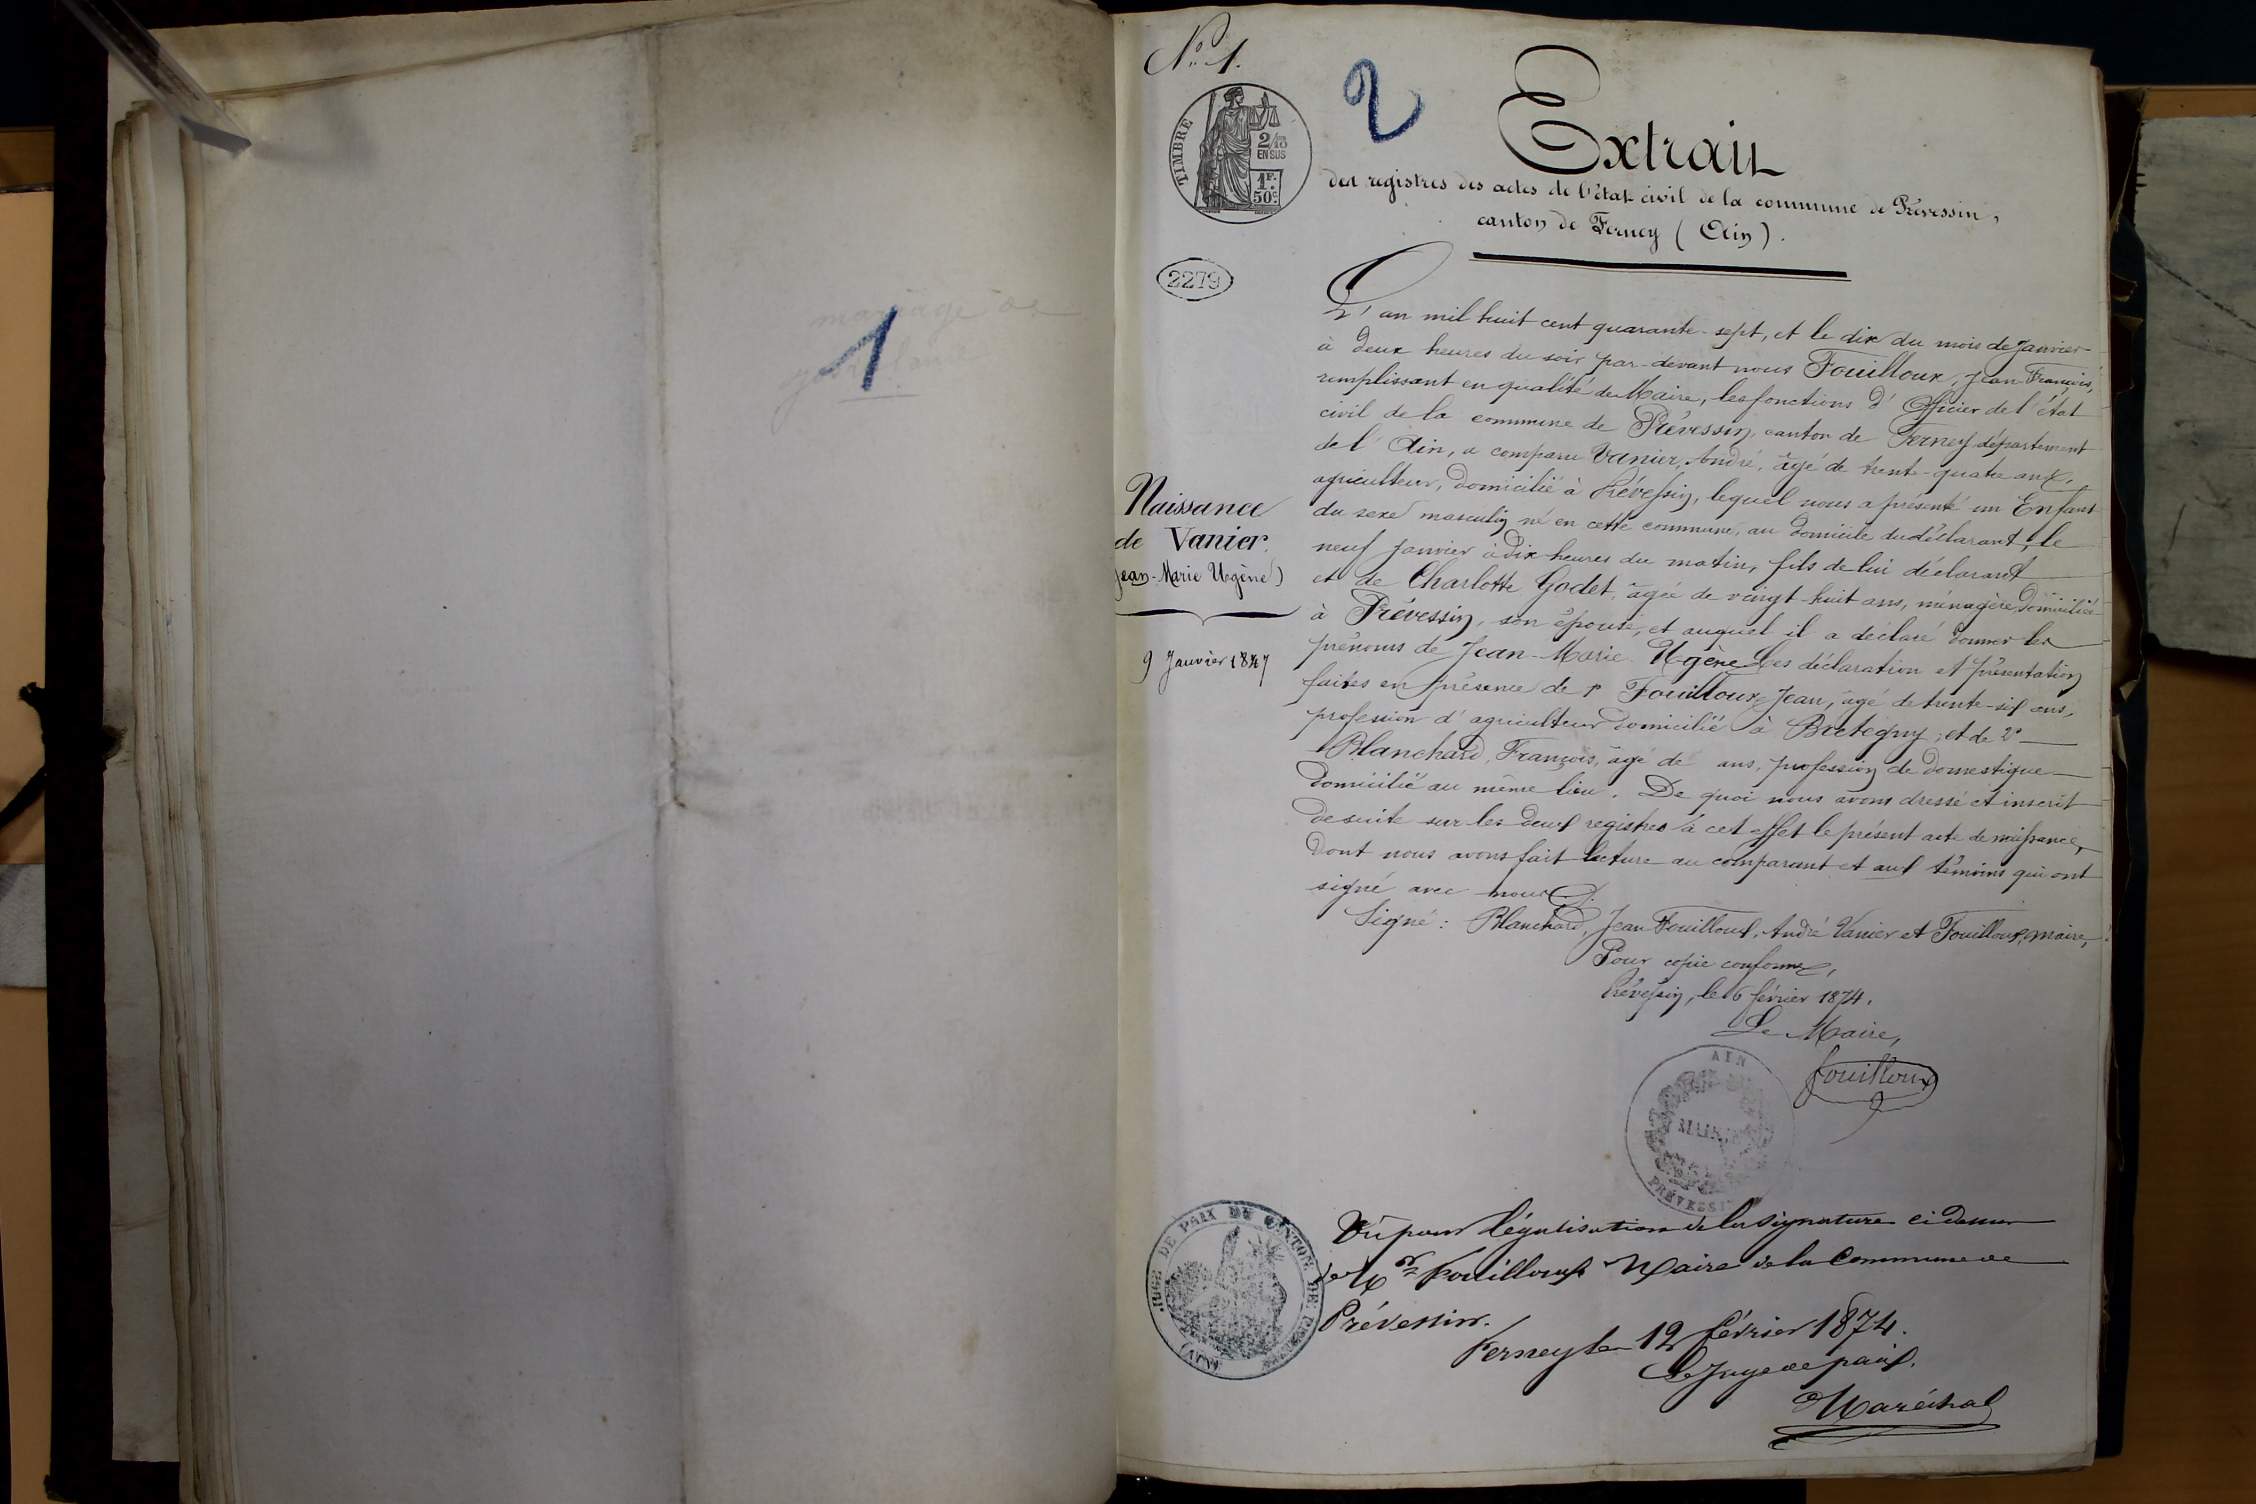 mariage de
1
N° 1.
2
TIMBRE
2/10
EN SUS
1F.
50c.
Extrait
des registres des actes de l'état civil de la commune de Prévessin,
canton de Ferney (Ain).
2279
Naissance
de Vanier.
Jean-Marie Ugène)
9 Janvier 1847
L'an mil huit cent quarante-sept, et le dix du mois de Janvier
à deux heures du soir par-devant nous Fouilloux, Jean-François,
remplissant en qualité de Maire, les fonctions d'Officier de l'état
civil de la commune de Prévessin, canton de Ferney département
de l'Ain, a comparu Vanier, André, âgé de trente-quatre ans,
agriculteur, domicilié à Prévessin, lequel nous a présenté un Enfant
du sexe masculin né en cette commune, au domicile du déclarant, le
neuf janvier à dix heures du matin, fils de lui déclarant
et de Charlotte Godet, âgée de vingt-huit ans, ménagère, domiciliée
à Prévessin, son épouse, et auquel il a déclaré donner les
prénoms de Jean-Marie Ugène. Les déclaration et présentation
faites en présence de 1° Fouilloux, Jean, âgé de trente-six ans,
profession d'agriculteur domicilié à Brétegny; et de 2°
Blanchard, François, âgé de ans, profession de domestique
domicilié au même lieu. De quoi nous avons dressé et inscrit
de suite sur les deux registres à cet effet le présent acte de naissance,
dont nous avons fait lecture au comparant et aux témoins qui ont
signé avec nous.
Signé : Blanchard, Jean Fouilloux, André Vanier et Fouilloux, maire,
Pour copie conforme,
Prévessin, le 6 février 1874.
Le Maire,
Fouilloux
AIN
MAIRIE
PRÉVESSIN
JUGE DE PAIX DU CANTON DE FERNEY
(AIN)
Vu pour légalisation de la signature ci dessus
de Mr Fouilloux Maire de la Commune de
Prévessin.
Ferney le 12 février 1874.
Le Juge de paix.
Maréchal